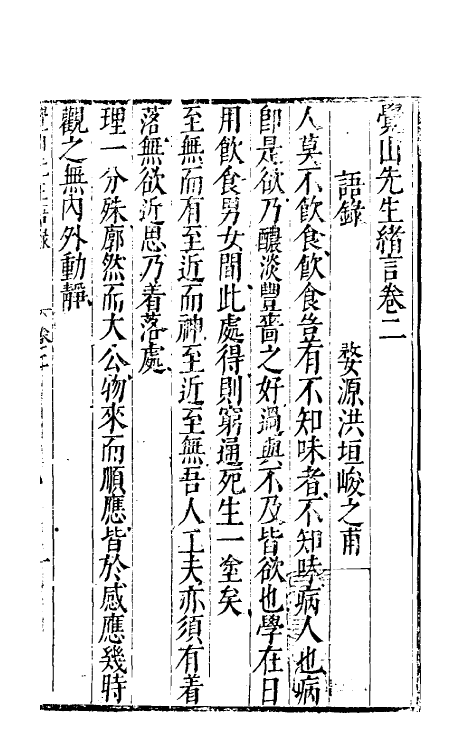 覺山先生緒言卷二
語錄 婺源洪垣峻之甫
人莫不飲食飲食豈有不知味者不知味病人也病
卽是欲乃醲淡豐嗇之好過與不及皆欲也學在日
用飲食男女間此處得則窮通死生一塗矣
至無而有至近而神至近至無吾人工夫亦須有着
落無欲近思乃着落處
理一分殊廓然而大公物來而順應皆於感應幾時
觀之無內外動靜